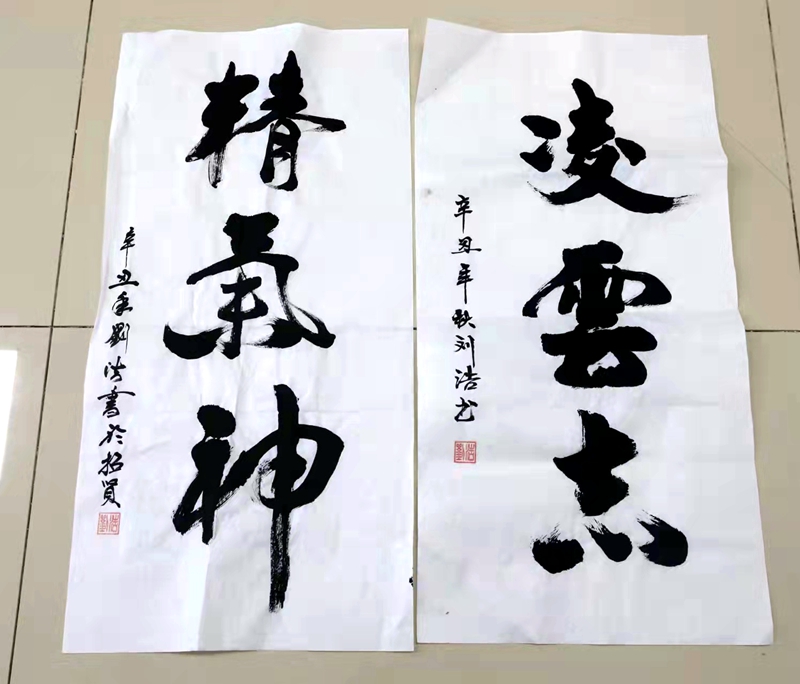 凌雲志
辛丑年秋刘浩书
精氣神
辛丑年劉浩書於招賢